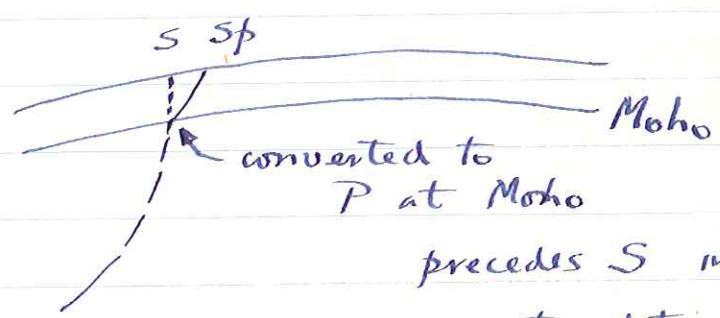 S Sp
Moho
converted to
P at Moho
precedes S